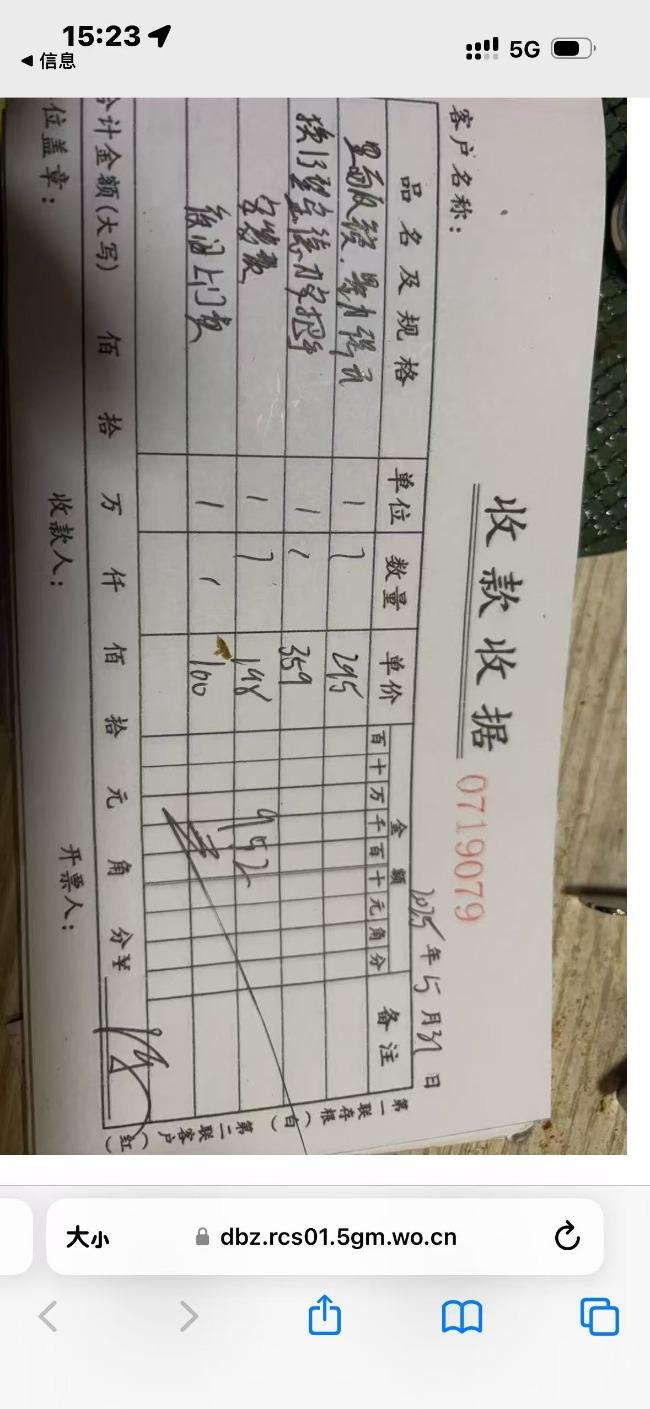 15:23
5G
信息
收款收据
0719079
客户名称：
2025年5月31日
品名及规格 单位 数量 单价 金额 备注
百十万千百十元角分
里面反锁.暴力 1 1 295
换 把手 1 1 359
安装费 1 1 198
夜间上门费 1 1 100
952
合计金额(大写) 佰 拾 万 仟 佰 拾 元 角 分 ¥
位盖章： 收款人： 开票人：
第一联存根（白） 第二联客户（红）
大小 dbz.rcs01.5gm.wo.cn